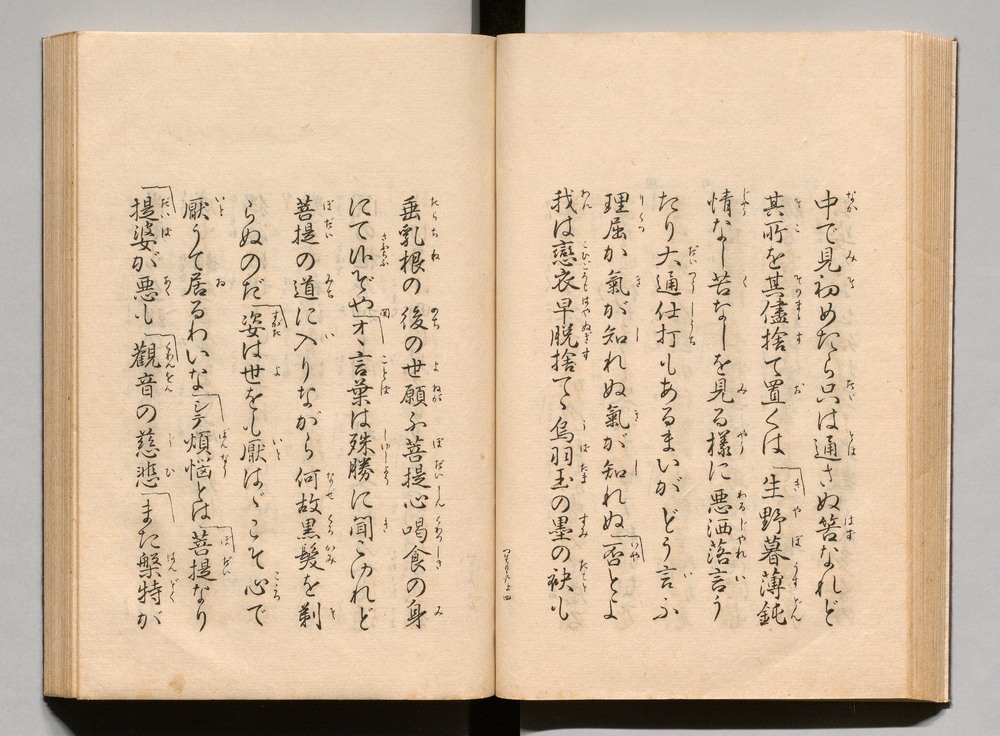 中で見初めたら只は通さぬ筈なれど
其所を其儘捨て置くは「生野暮薄鈍
情なし苦なしを見る樣に悪洒落言う
たり大通仕打もあるまいがどう言ふ
理屈か氣が知れぬ氣が知れぬ「否とよ
我は戀衣早脱捨てゝ烏羽玉の墨の袂も
垂乳根の後の世願ふ菩提心喝食の身
にて候ぞや「オヽ言葉は殊勝に聞こゆれど
菩提の道に入りながら何故黒髪を剃
らぬのだ「姿は世をも厭はゞこそ心で
厭うて居るわいな「シテ煩悩とは「菩提なり
「提婆が悪も「觀音の慈悲「また槃特が